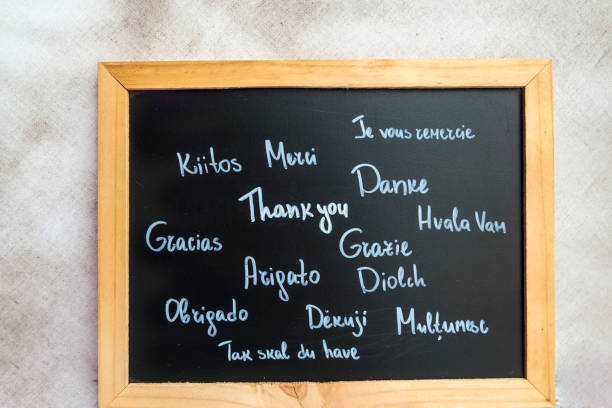 Je vous remercie
Kiitos Merci
Danke
Thank you
Hvala Vam
Gracias
Grazie
Arigato Diolch
Obrigado Děkuji Mulţumesc
Tak skal du have